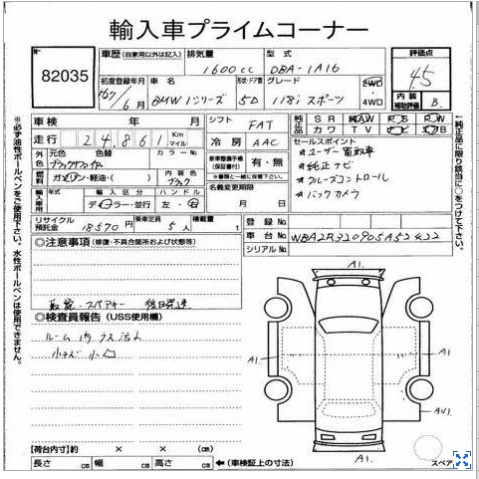 輸入車プライムコーナー
No.
82035
車歴 (自家用以外は記入)
排気量
1600cc
型式
DBA-1A16
評価点
4.5
初度登録年月
6月
車名
BMW 1シリーズ
形状・ドア数
5D
118i スポーツ
2WD
4WD
内装
補助評価
B
車検 年 月
シフト
FAT
純正品
SR AW PS PW
カワ TV
走行
24,861
Km
マイル
冷房
AAC
セールスポイント
ユーザー買取車
純正ナビ
クルーズコントロール
バックカメラ
外色
元色
色替
カラーNo.
燃料
ガソリン・軽油・( )
内装色
ブラック
新車整備手帳
(保証書付)
有・無
輸入車専用
年式
輸入区分
ハンドル
ディーラー・並行
左・右
名義変更期限
月 日
リサイクル
預託金
18570 円
乗車定員
5 人
積載量
t
登録No.
車台No.
シリアルNo.
◎注意事項 (修復・不具合箇所および状態等)
取説・スペアキー 後日発送
◎検査員報告 (USS使用欄)
ルーム内
【荷台内寸】約 × × (cm)
長さ cm 幅 cm 高さ cm
←(車検証上の寸法)
A1
A1
A1
AU1
A1
スペア
※必ず油性ボールペンをご使用下さい。水性ボールペンは使用できません。
↑純正品に限り該当に○をつけて下さい。